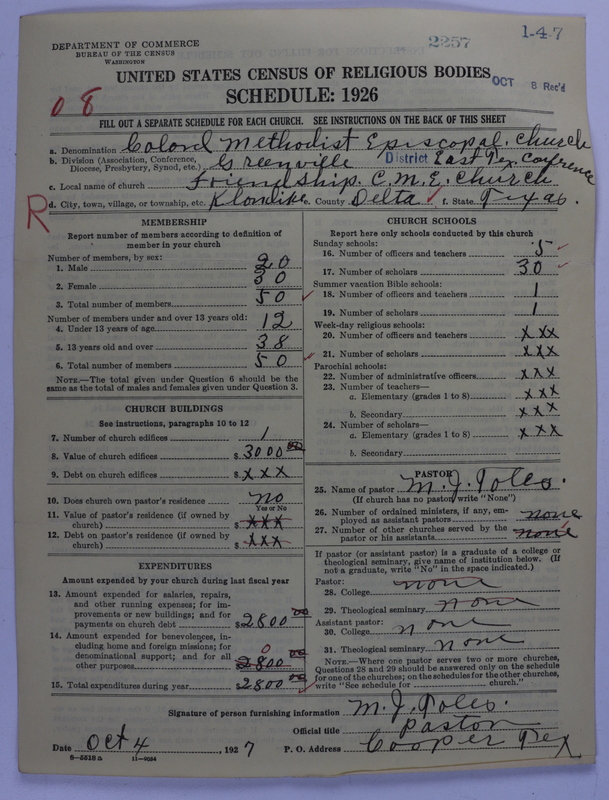 DEPARTMENT OF COMMERCE
BUREAU OF THE CENSUS
WASHINGTON
2257
1-47
UNITED STATES CENSUS OF RELIGIOUS BODIES
OCT 8 Rec'd
SCHEDULE: 1926
08
FILL OUT A SEPARATE SCHEDULE FOR EACH CHURCH. SEE INSTRUCTIONS ON THE BACK OF THIS SHEET
a. Denomination Colord Methodist Episcopal. Church
b. Division (Association, Conference, Diocese, Presbytery, Synod, etc.) Greenville District East Tex. Conference
c. Local name of church Friendship. C.M.E. Church
R
d. City, town, village, or township, etc. Klondike e. County Delta f. State Texas.
MEMBERSHIP
Report number of members according to definition of member in your church
Number of members, by sex:
1. Male 20
2. Female 30
3. Total number of members 50
Number of members under and over 13 years old:
4. Under 13 years of age 12
5. 13 years old and over 38
6. Total number of members 50
NOTE.—The total given under Question 6 should be the same as the total of males and females given under Question 3.
CHURCH BUILDINGS
See instructions, paragraphs 10 to 12
7. Number of church edifices 1
8. Value of church edifices $3000 00
9. Debt on church edifices $xxx
10. Does church own pastor's residence no
Yes or No
11. Value of pastor's residence (if owned by church) $xxx
12. Debt on pastor's residence (if owned by church) $xxx
EXPENDITURES
Amount expended by your church during last fiscal year
13. Amount expended for salaries, repairs, and other running expenses; for improvements or new buildings; and for payments on church debt $2800 00
14. Amount expended for benevolences, including home and foreign missions; for denominational support; and for all other purposes 0 $2800 00
15. Total expenditures during year $2800 00
CHURCH SCHOOLS
Report here only schools conducted by this church
Sunday schools:
16. Number of officers and teachers 5
17. Number of scholars 30
Summer vacation Bible schools:
18. Number of officers and teachers 1
19. Number of scholars 1
Week-day religious schools:
20. Number of officers and teachers xxx
21. Number of scholars xxx
Parochial schools:
22. Number of administrative officers xxx
23. Number of teachers—
a. Elementary (grades 1 to 8) xxx
b. Secondary xxx
24. Number of scholars—
a. Elementary (grades 1 to 8) xxx
b. Secondary
PASTOR
25. Name of pastor M. J. Poles.
(If church has no pastor, write "None")
26. Number of ordained ministers, if any, employed as assistant pastors none
27. Number of other churches served by the pastor or his assistants none
If pastor (or assistant pastor) is a graduate of a college or theological seminary, give name of institution below. (If not a graduate, write "No" in the space indicated.)
Pastor:
28. College none
29. Theological seminary none
Assistant pastor:
30. College none
31. Theological seminary none
NOTE.—Where one pastor serves two or more churches, Questions 28 and 29 should be answered only on the schedule for one of the churches; on the schedules for the other churches, write "See schedule for ______ church."
Signature of person furnishing information M. J. Poles.
Official title pastor
Date Oct 4, 1927 P. O. Address Cooper Tex
8—5518 a 11—9024